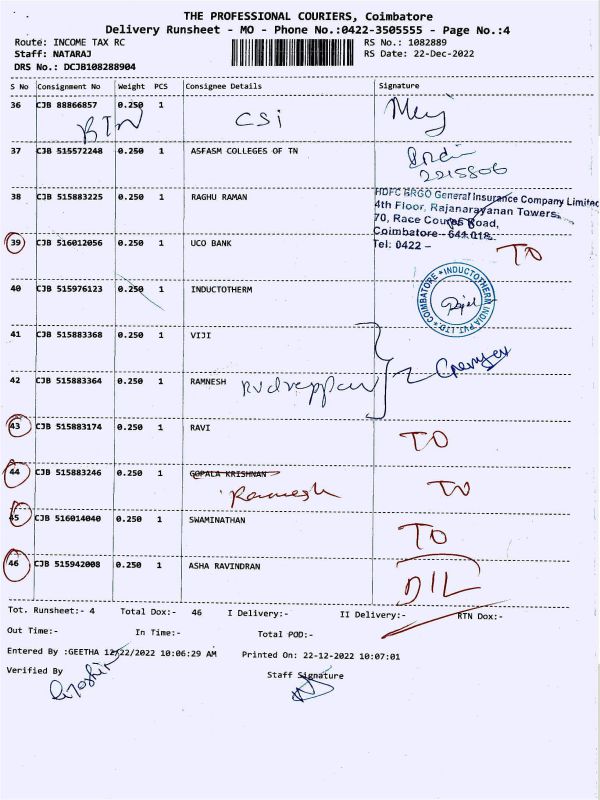 THE PROFESSIONAL COURIERS, Coimbatore
Delivery Runsheet - MO - Phone No.:0422-3505555 - Page No.:4
Route: INCOME TAX RC RS No.: 1082889
Staff: NATARAJ RS Date: 22-Dec-2022
DRS No.: DCJB108288904
S No Consignment No Weight PCS Consignee Details Signature
36 CJB 88866857 0.250 1
RTN CSi
37 CJB 515572248 0.250 1 ASFASM COLLEGES OF TN
2215806
38 CJB 515883225 0.250 1 RAGHU RAMAN
HDFC ERGO General Insurance Company Limited
4th Floor, Rajanarayanan Towers,
70, Race Course Road,
Coimbatore - 641 018.
Tel: 0422 -
39 CJB 516012056 0.250 1 UCO BANK TO
40 CJB 515976123 0.250 1 INDUCTOTHERM
INDUCTOTHERM INDIA PVT. LTD * COIMBATORE *
41 CJB 515883368 0.250 1 VIJI
42 CJB 515883364 0.250 1 RAMNESH
43 CJB 515883174 0.250 1 RAVI TO
44 CJB 515883246 0.250 1 GOPALA KRISHNAN TO
Ramnesh
45 CJB 516014040 0.250 1 SWAMINATHAN TO
46 CJB 515942008 0.250 1 ASHA RAVINDRAN
D/L
Tot. Runsheet:- 4 Total Dox:- 46 I Delivery:- II Delivery:- RTN Dox:-
Out Time:- In Time:- Total POD:-
Entered By :GEETHA 12/22/2022 10:06:29 AM Printed On: 22-12-2022 10:07:01
Verified By Staff Signature